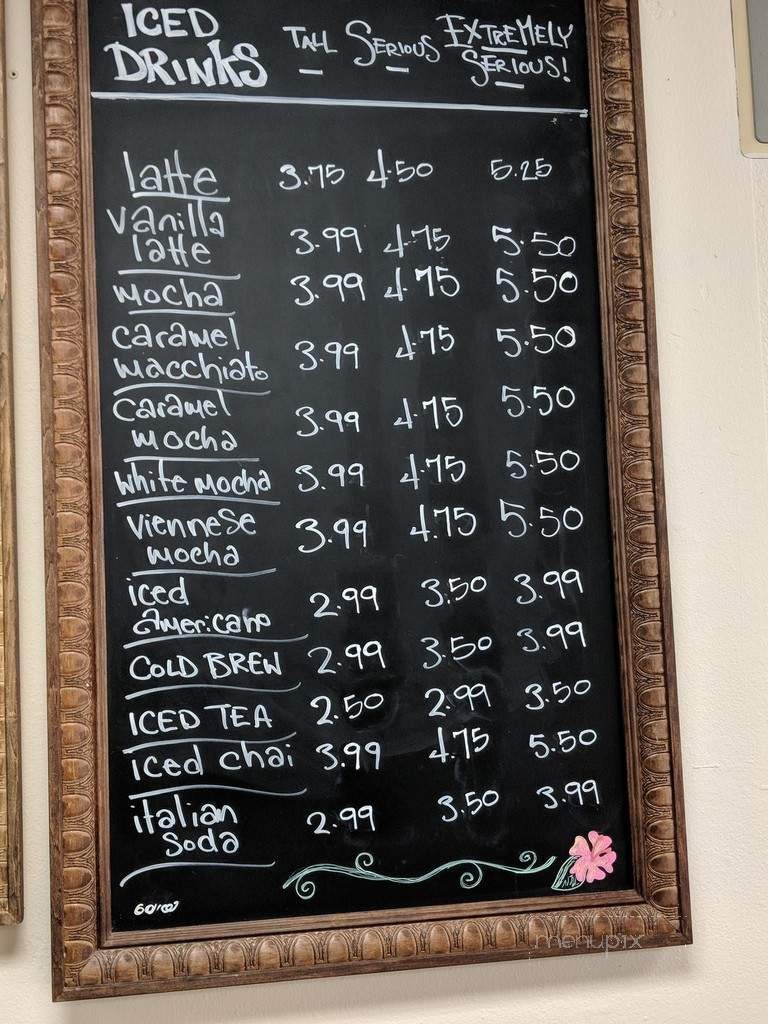 ICED TALL SERIOUS EXTREMELY
DRINKS SERIOUS!
latte 3.75 4.50 5.25
vanilla
latte 3.99 4.75 5.50
mocha 3.99 4.75 5.50
caramel
macchiato 3.99 4.75 5.50
caramel
mocha 3.99 4.75 5.50
white mocha 3.99 4.75 5.50
viennese
mocha 3.99 4.75 5.50
iced
americano 2.99 3.50 3.99
COLD BREW 2.99 3.50 3.99
ICED TEA 2.50 2.99 3.50
iced chai 3.99 4.75 5.50
italian
soda 2.99 3.50 3.99
menupix